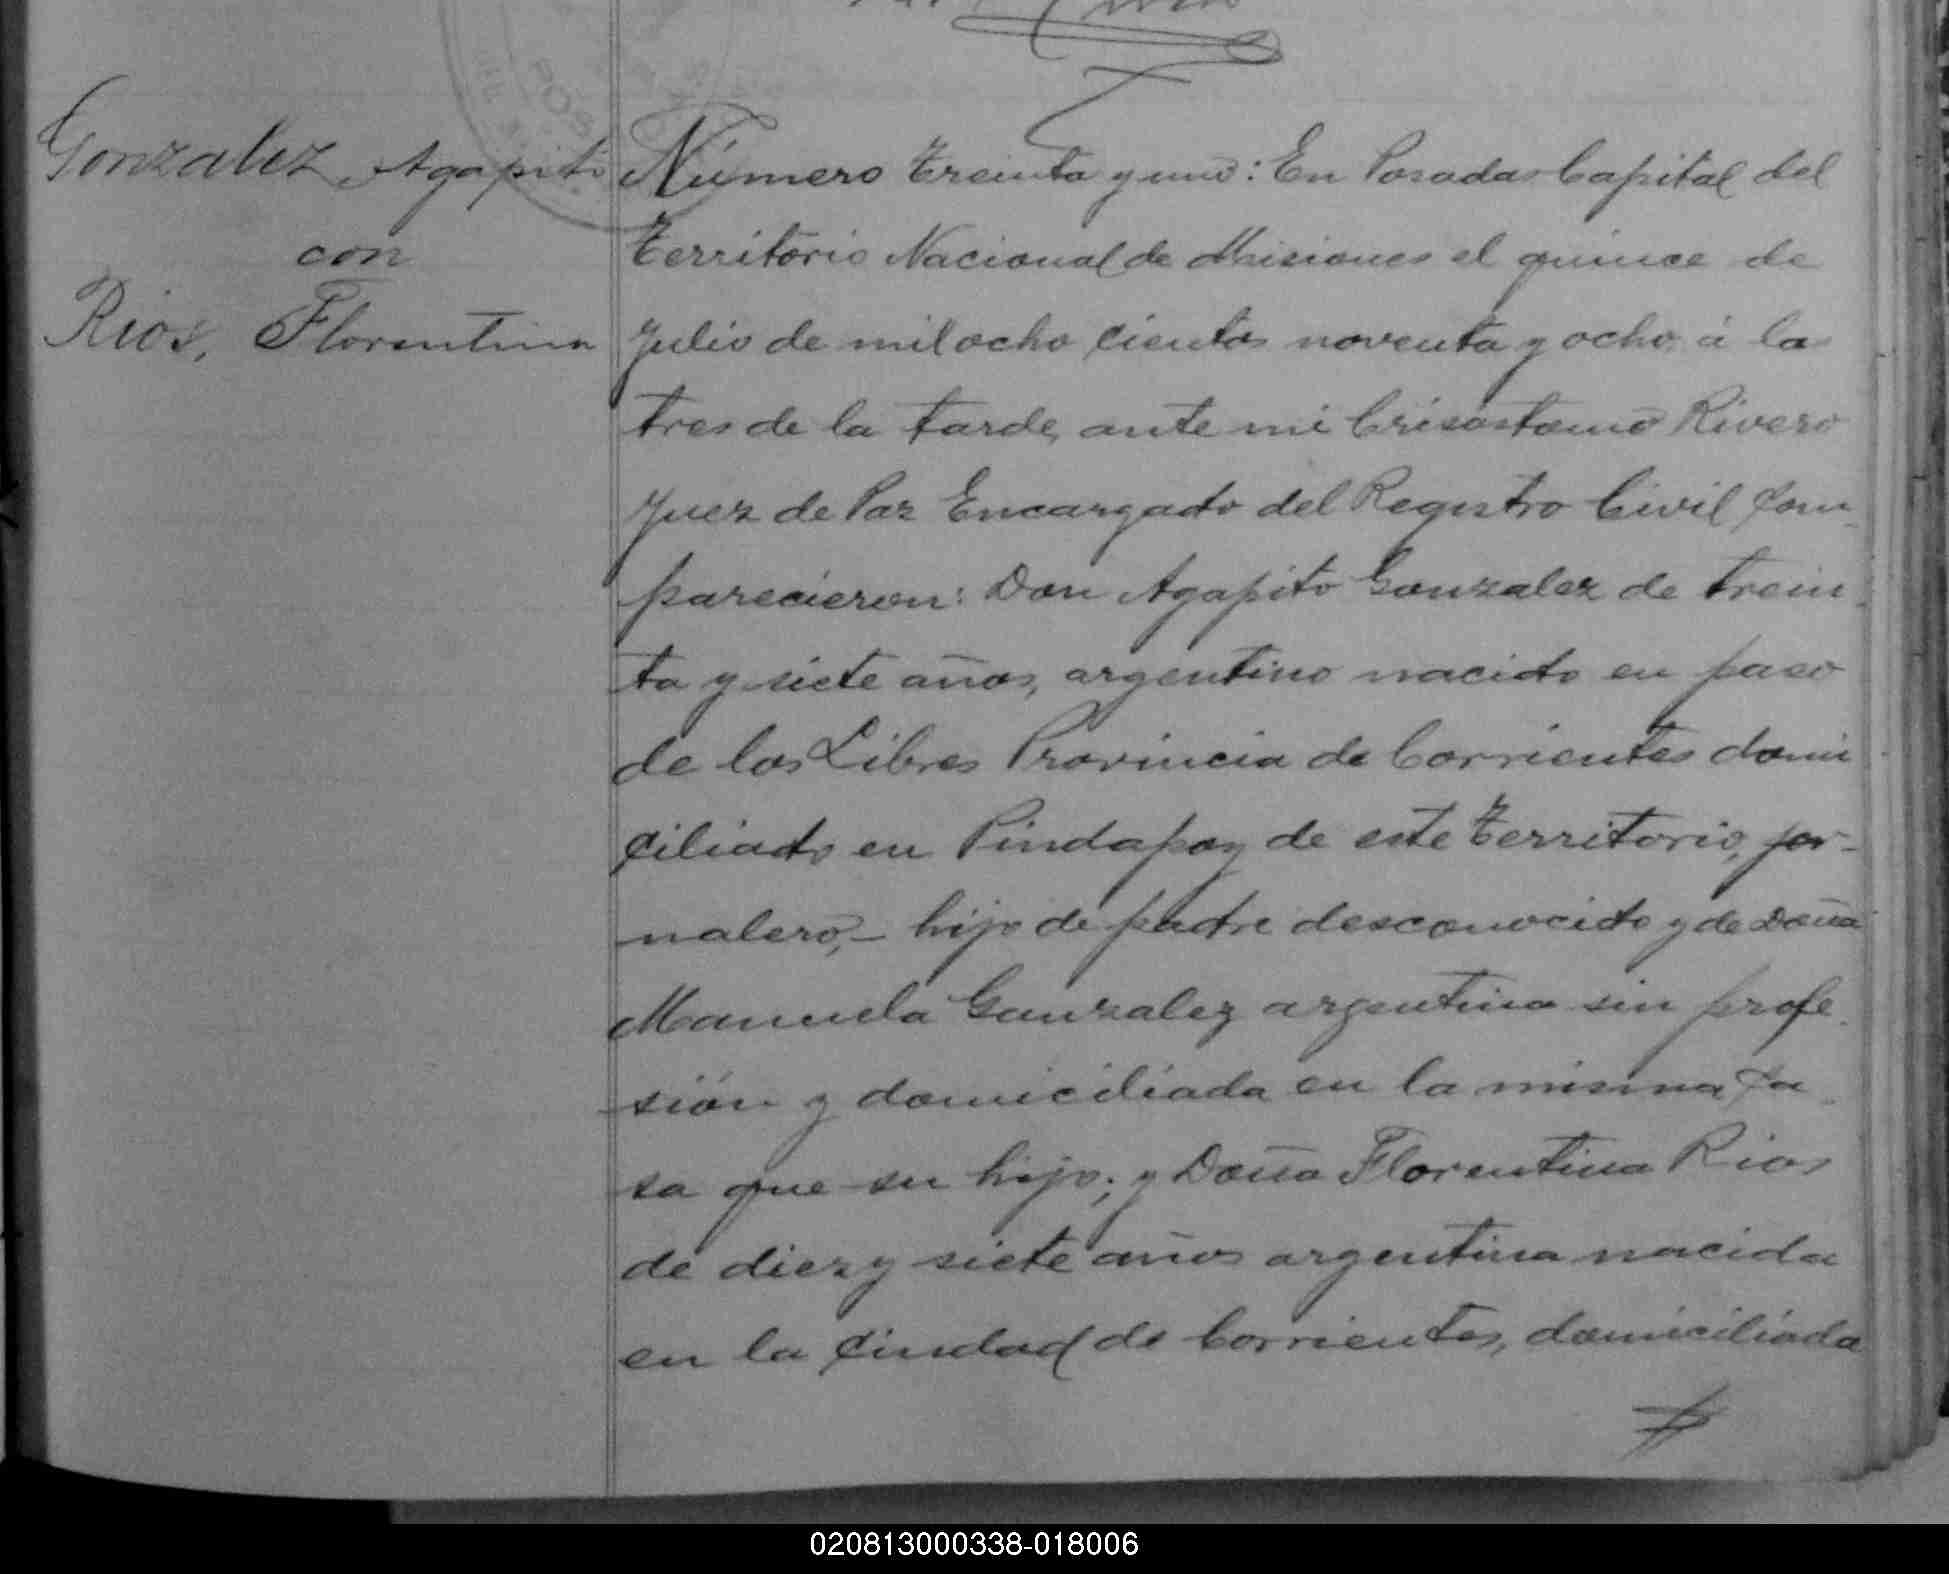 Gonzalez, Agapito
con
Rios, Florentina
POS
Número treinta y uno: En Posadas Capital del
territorio Nacional de Misiones el quince de
Julio de mil ocho cientos noventa y ocho, á las
tres de la tarde, ante mi Crisóstomo Rivero
Juez de Paz Encargado del Registro Civil com-
parecieron: Don Agapito Gonzalez de trein-
ta y siete años, argentino nacido en paso
de los Libres Provincia de Corrientes domi
ciliado en Pindapoy de este territorio, jor-
nalero,- hijo de padre desconocido y de Doña
Manuela Gonzalez argentina sin profe-
sión y domiciliada en la misma ca-
sa que su hijo; y Doña Florentina Rios
de diez y siete años argentina nacida
en la ciudad de Corrientes, domiciliada
020813000338-018006